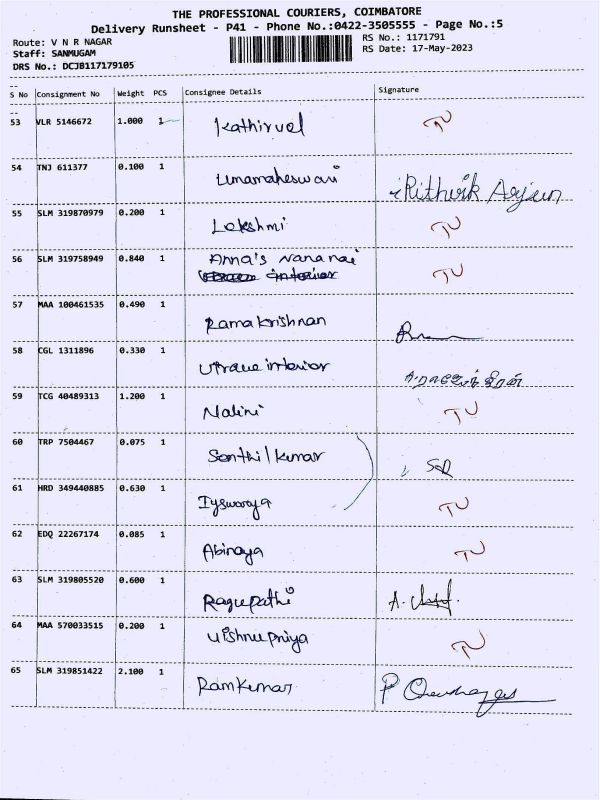 THE PROFESSIONAL COURIERS, COIMBATORE
Delivery Runsheet - P41 - Phone No.:0422-3505555 - Page No.:5
Route: V N R NAGAR
Staff: SANMUGAM
DRS No.: DCJB117179105
RS No.: 1171791
RS Date: 17-May-2023
S No Consignment No Weight PCS Consignee Details Signature
53 VLR 5146672 1.000 1 Kathirvel
54 TNJ 611377 0.100 1 Umamaheswari Rithvik Arjun
55 SLM 319870979 0.200 1 Lakshmi
56 SLM 319758949 0.840 1 Anna's Nana nai
interior
57 MAA 100461535 0.490 1 Rama krishnan
58 CGL 1311896 0.330 1 Utraue interior
59 TCG 40489313 1.200 1 Nalini
60 TRP 7504467 0.075 1 Senthil kumar
61 HRD 349440885 0.630 1 Iyswarya
62 EDQ 22267174 0.085 1 Abinaya
63 SLM 319805520 0.600 1 Ragupathi A.
64 MAA 570033515 0.200 1 Vishnu priya
65 SLM 319851422 2.100 1 Ramkumar P